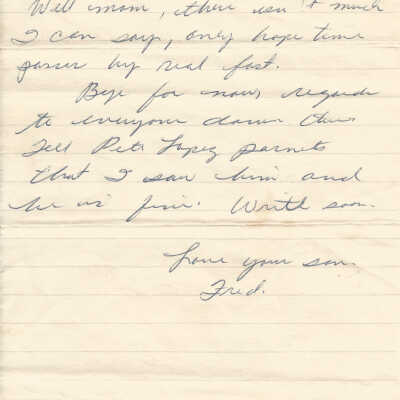 Well mom, there isn't much
I can say, only hope time
passes by real fast.
Bye for now, regards
to everyone down there
Tell Pete Lopez parnets
that I saw him and
he is fine. Write soon.
Love your son.
Fred.